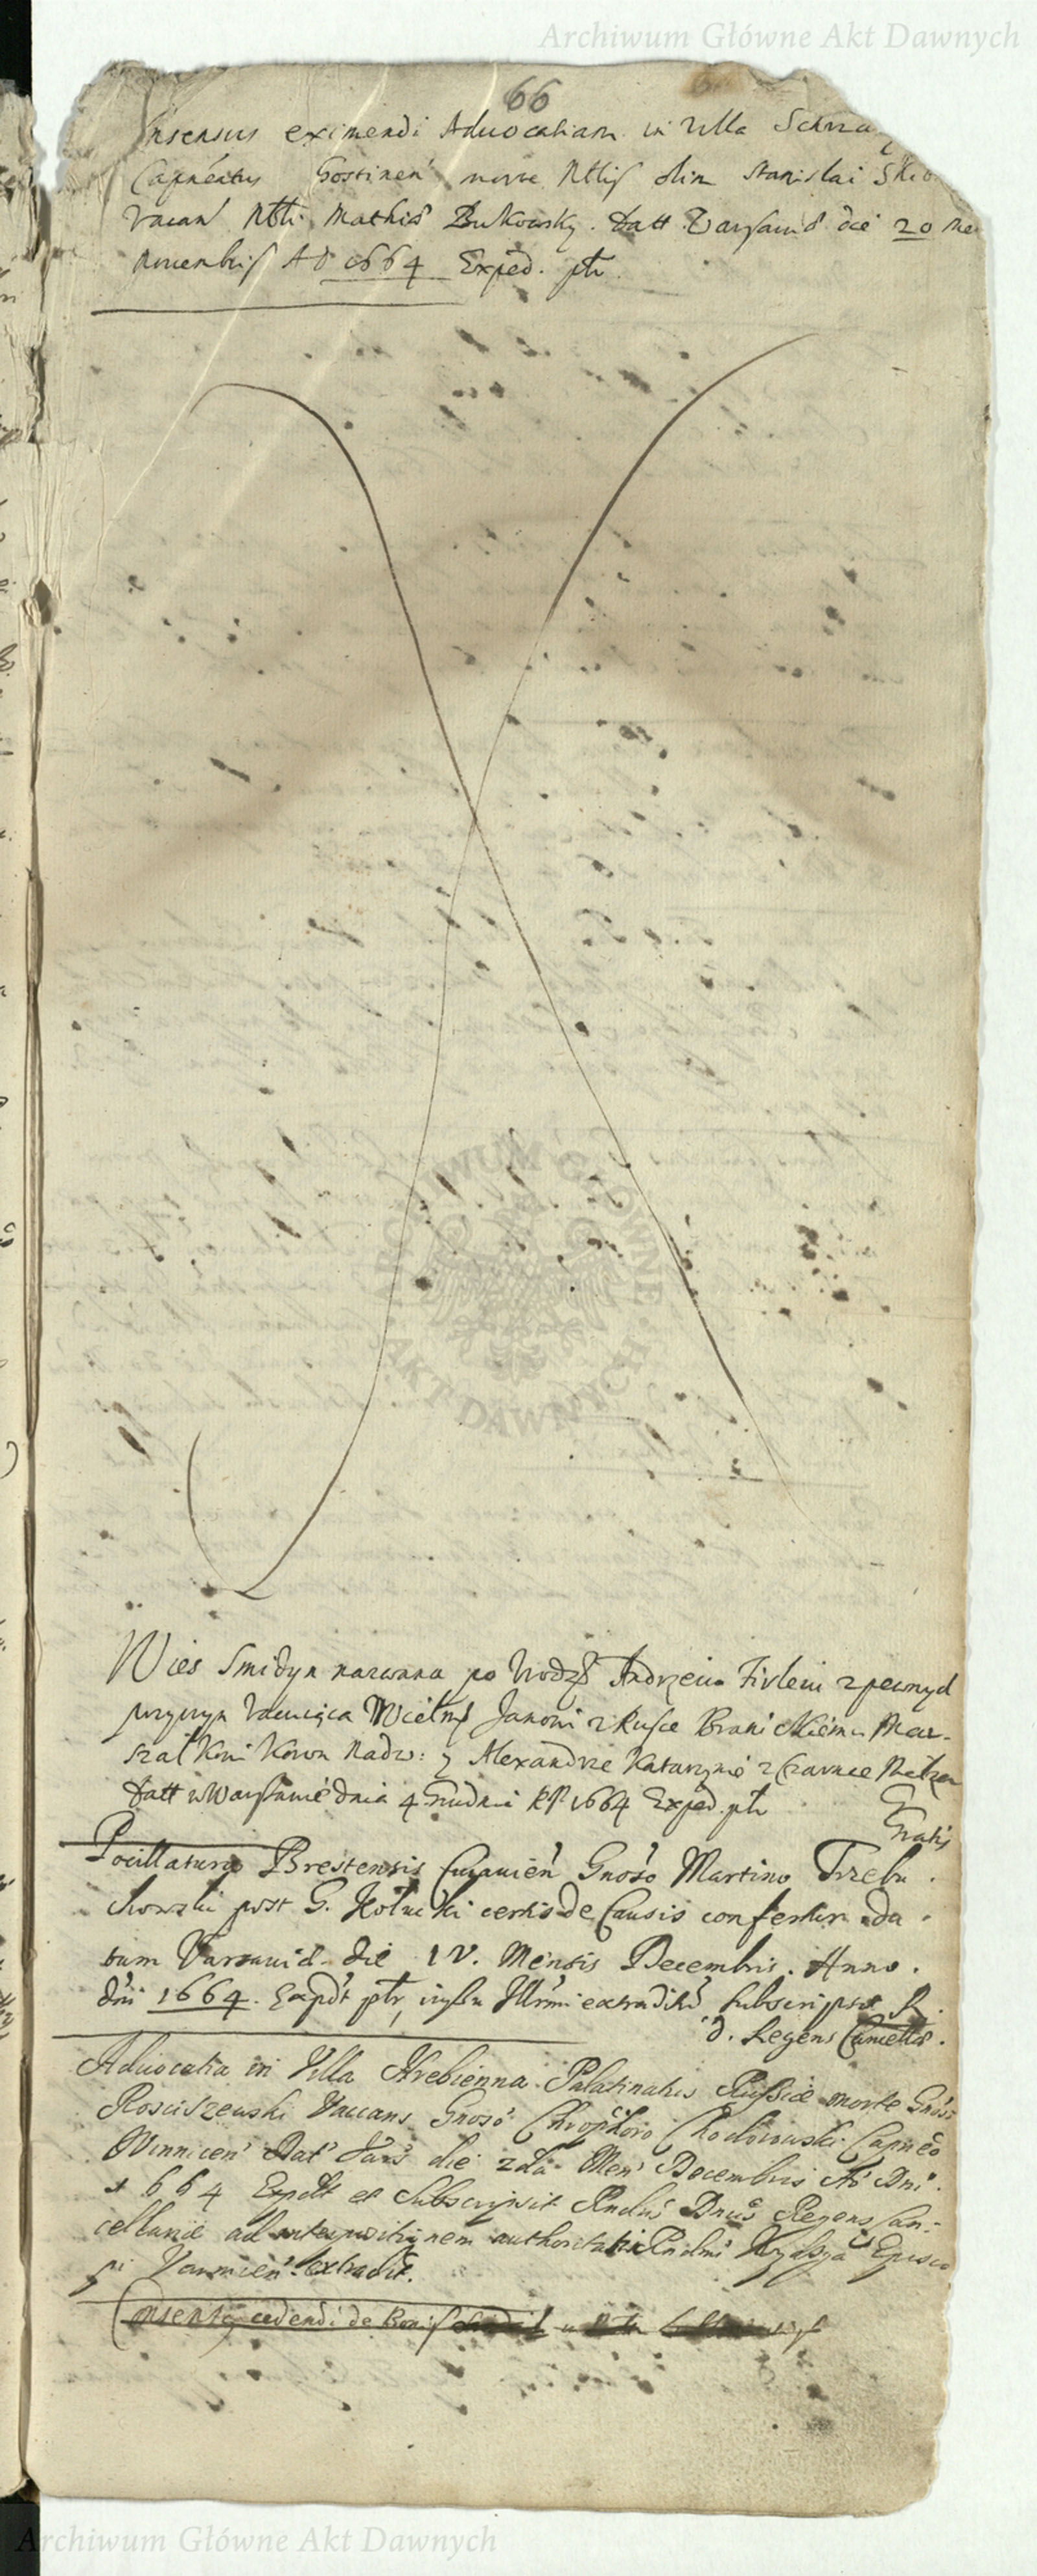 Archiwum Główne Akt Dawnych
66
Consensus eximendi Advocatiam in Villa
Capneatus Gostinen' morte Nblis olim Stanislai
vacan' Nbli Mathiae Bukowsky. Datt Varsaviae die 20 Me
novembris A D 1664 Exped. ptr
ARCHIWUM GŁÓWNE AKT DAWNYCH
Wies Smidyn nazwana po Urodz Andrzeiu Firleiu z pewnych
przyczyn vacuiąca Wielm Janowi z Rusce Branickiemu Mar-
szałkowi Koron Nadw: y Alexandrze Katarzynie z Czarnce
Datt w Warszawie dnia 4 Grudnia RP 1664 Exped ptr
Gratis
Pocillatura Brestensis Cujavien' Gnoso Martino Trzebu
chowski post G. Kołucki certis de Causis confertur da
tum Varsaviae die IV. Mensis Decembris. Anno.
dni 1664. Expdt ptr, iussu Illrmi extraditae subscripsit R.
d. Regens Cancellae.
Advocatia in Villa Hrebienna Palatinatus Russiae morte Gnosi
Rosciszewski Vacans Gnoso Chrophoro Chodorowski Capneo
Winnicen' Dat' Vars die 2da Men' Decembris Ao Dni.
1664 Expdt et Subscripsit Rndus Dnus Regens Can-
cellariae ad interpositionem authoritatis Rndmi Episco
pi Varmien' extradit.
Consensus cedendi de bonis
Archiwum Główne Akt Dawnych